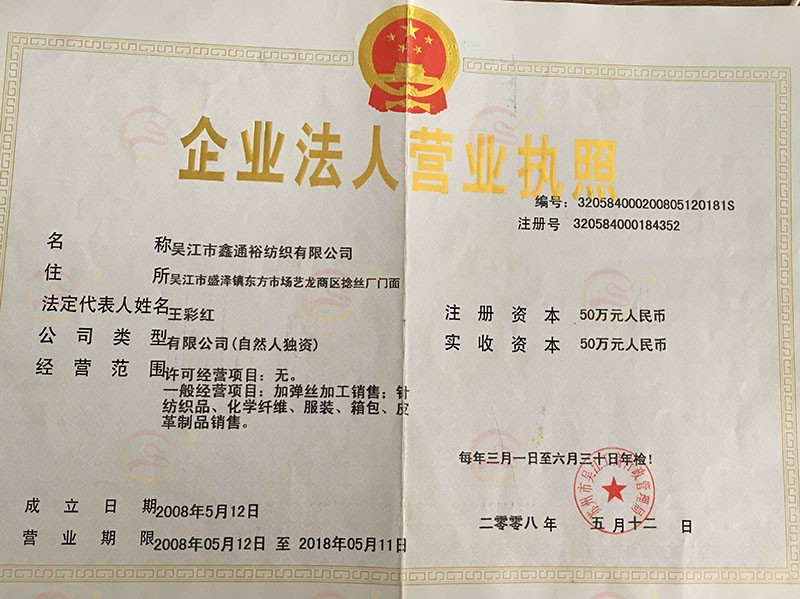 企业法人营业执照
编号: 320584000200805120181S
注册号 320584000184352
名称 吴江市鑫通裕纺织有限公司
住所 吴江市盛泽镇东方市场艺龙商区捻丝厂门面
法定代表人姓名 王彩红
公司类型 有限公司(自然人独资)
经营范围 许可经营项目: 无。
一般经营项目: 加弹丝加工销售; 针
纺织品、化学纤维、服装、箱包、皮
革制品销售。
注册资本 50万元人民币
实收资本 50万元人民币
每年三月一日至六月三十日年检!
成立日期 2008年5月12日
营业期限 2008年05月12日 至 2018年05月11日
二零零八年 五月十二日